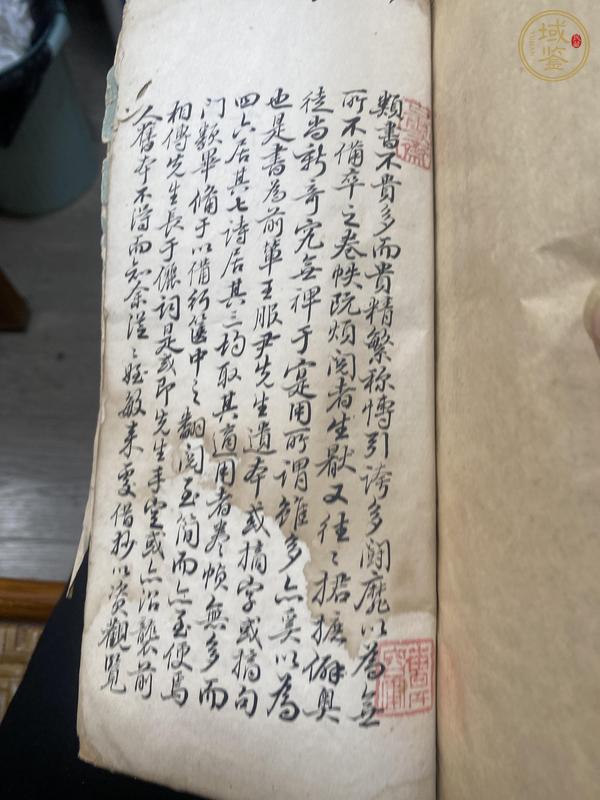 類書不貴多而貴精繁称博引誇多鬪靡以為無
所不備卒之卷帙既煩閱者生厭又往〻捃摭僻奥
徒尚新奇究無裨于寔用所謂雖多亦奚以為
也是書為前軰王服尹先生遺本或摘字或摘句
四六居其七詩居其三均取其適用者卷帧無多而
门類畢備于以備行箧中之翻阅至简而亦至便焉
相傳先生長于儷詞是或即先生手定或亦沿襲前
人舊本不得而知余從〻姪敏来處借抄以資觀覽
域鉴